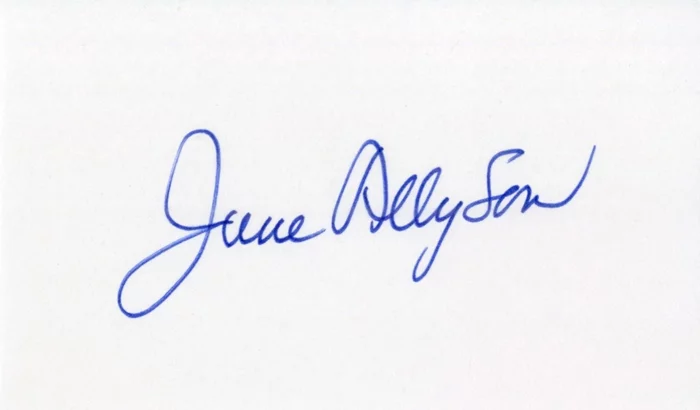 June Allyson